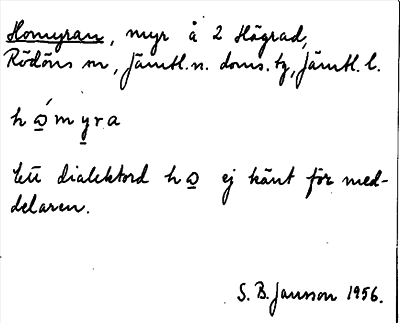 Homyran, myr å 2 Högrad,
Rödöns sn, Jämtl. n. doms. tg, Jämtl. l.
h ώ̲ m y̲ r a
Ett dialektord h ω̲ ej känt för med-
delaren.
S. B. Jansson 1956.